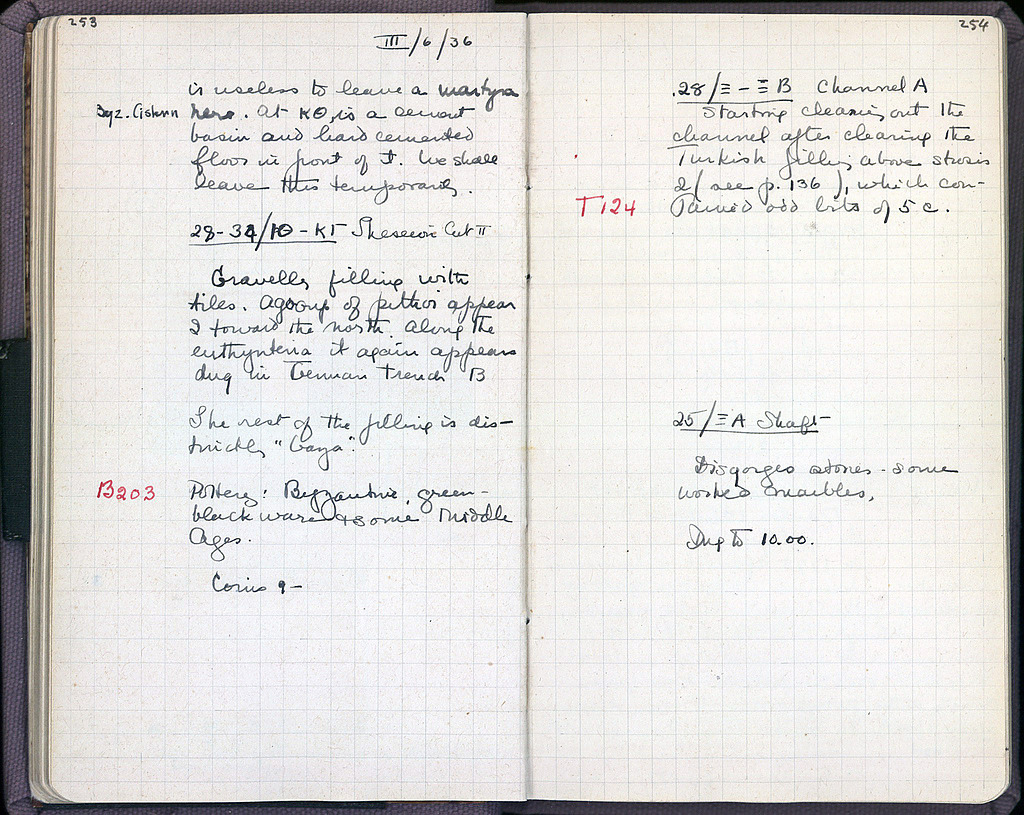 253
III/6/36
is useless to leave a martyra
Byz. Cistern here. At ΚΘ, is a cement
basin and hard cemented
floor in front of it. We shall
leave this temporarily.
28-34/ΙΘ - ΚΓ Cut II
Gravelly filling with
tiles. A group of pithoi appear
toward the north. Along the
euthynteria it again appears
dug in German Trench B
The rest of the filling is dis-
tinctly "Gaza".
B203 Pottery: Byzantine, green-
black ware & some Middle
Ages.
Coins 9 -
254
28/Ξ - Ξ B Channel A
Starting cleaning out the
channel after clearing the
Turkish filling above strosis
2 (see p. 136), which con-
T124 tained odd bits of 5 c.
25/Ξ A Shaft
Disgorges stones - some
worked marbles.
Dug to 10.00.